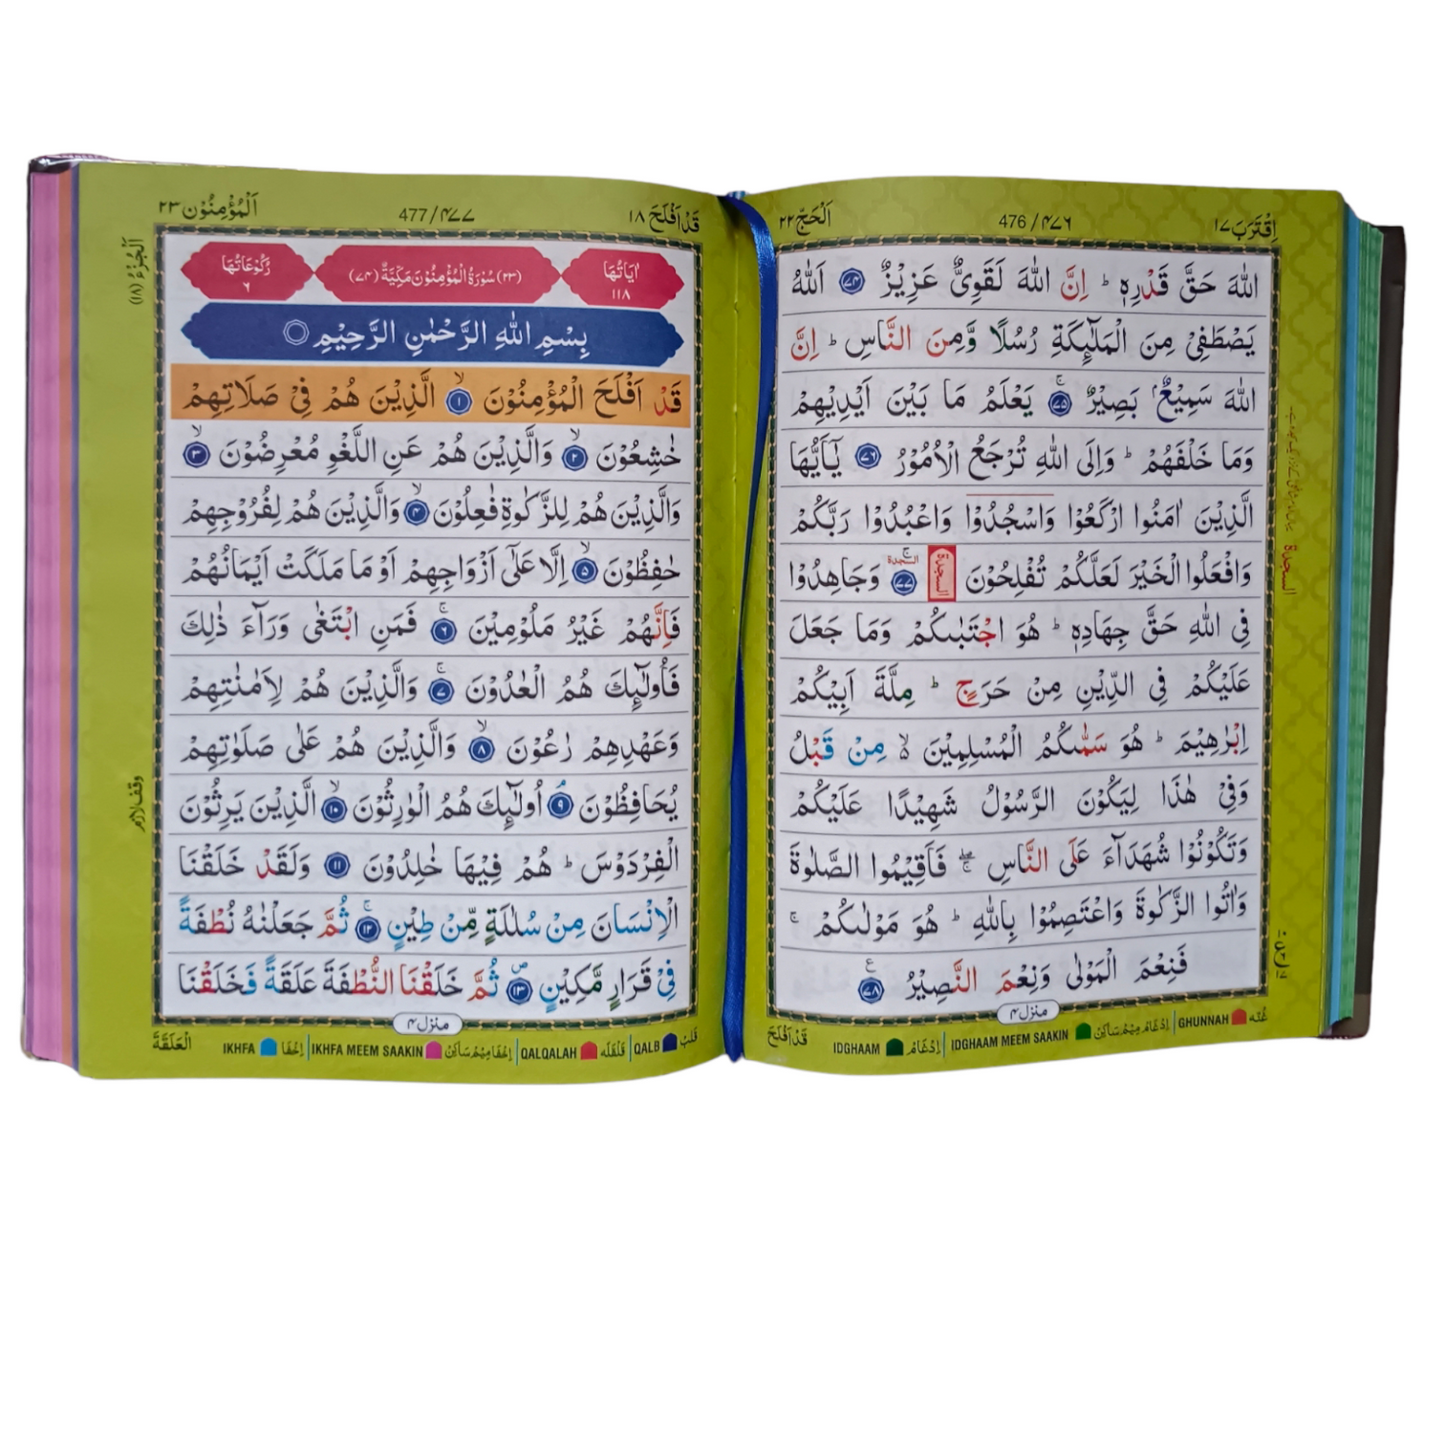 اِقْتَرَبَ ١٧
476/۴۷۶
اَلْحَجّ ٢٢
اللّٰهَ حَقَّ قَدْرِهٖ ؕ اِنَّ اللّٰهَ لَقَوِىٌّ عَزِيْزٌ ٧٤ اَللّٰهُ
يَصْطَفِىْ مِنَ الْمَلٰٓئِكَةِ رُسُلًا وَّمِنَ النَّاسِ ؕ اِنَّ
اللّٰهَ سَمِيْعٌۢ بَصِيْرٌ ۚ ٧٥ يَعْلَمُ مَا بَيْنَ اَيْدِيْهِمْ
وَمَا خَلْفَهُمْ ؕ وَاِلَى اللّٰهِ تُرْجَعُ الْاُمُوْرُ ٧٦ يٰۤاَيُّهَا
الَّذِيْنَ اٰمَنُوا ارْكَعُوْا وَاسْجُدُوْا وَاعْبُدُوْا رَبَّكُمْ
وَافْعَلُوا الْخَيْرَ لَعَلَّكُمْ تُفْلِحُوْنَ السجدة ۚ ٧٧ وَجَاهِدُوْا
فِى اللّٰهِ حَقَّ جِهَادِهٖ ؕ هُوَ اجْتَبٰىكُمْ وَمَا جَعَلَ
عَلَيْكُمْ فِى الدِّيْنِ مِنْ حَرَجٍ ؕ مِلَّةَ اَبِيْكُمْ
اِبْرٰهِيْمَ ؕ هُوَ سَمّٰىكُمُ الْمُسْلِمِيْنَ ۙ مِنْ قَبْلُ
وَفِىْ هٰذَا لِيَكُوْنَ الرَّسُوْلُ شَهِيْدًا عَلَيْكُمْ
وَتَكُوْنُوْا شُهَدَآءَ عَلَى النَّاسِ ۖۚ فَاَقِيْمُوا الصَّلٰوةَ
وَاٰتُوا الزَّكٰوةَ وَاعْتَصِمُوْا بِاللّٰهِ ؕ هُوَ مَوْلٰىكُمْ ۚ
فَنِعْمَ الْمَوْلٰى وَنِعْمَ النَّصِيْرُ ٧٨
السجدة
منزل ۴
غُنّه GHUNNAH | اِدْغَامْ مِيْمْ سَاكِنْ IDGHAAM MEEM SAAKIN | اِدْغَامْ IDGHAAM
قَدْ اَفْلَحَ
قَدْ اَفْلَحَ ١٨
477/۴۷۷
اَلْمُؤْمِنُوْن ٢٣
اَلْجُزْءُ (١٨)
اٰيَاتُهَا ١١٨
(٢٣) سُوْرَةُ الْمُؤْمِنُوْنَ مَكِّيَّةٌ (٧٤)
رُكُوْعَاتُهَا ٦
بِسْمِ اللّٰهِ الرَّحْمٰنِ الرَّحِيْمِ
قَدْ اَفْلَحَ الْمُؤْمِنُوْنَ ۙ ١ الَّذِيْنَ هُمْ فِىْ صَلَاتِهِمْ
خٰشِعُوْنَ ۙ ٢ وَالَّذِيْنَ هُمْ عَنِ اللَّغْوِ مُعْرِضُوْنَ ۙ ٣
وَالَّذِيْنَ هُمْ لِلزَّكٰوةِ فٰعِلُوْنَ ۙ ٤ وَالَّذِيْنَ هُمْ لِفُرُوْجِهِمْ
حٰفِظُوْنَ ۙ ٥ اِلَّا عَلٰٓى اَزْوَاجِهِمْ اَوْ مَا مَلَكَتْ اَيْمَانُهُمْ
فَاِنَّهُمْ غَيْرُ مَلُوْمِيْنَ ۚ ٦ فَمَنِ ابْتَغٰى وَرَآءَ ذٰلِكَ
فَاُولٰٓئِكَ هُمُ الْعٰدُوْنَ ۚ ٧ وَالَّذِيْنَ هُمْ لِاَمٰنٰتِهِمْ
وَعَهْدِهِمْ رٰعُوْنَ ۙ ٨ وَالَّذِيْنَ هُمْ عَلٰى صَلَوٰتِهِمْ
يُحَافِظُوْنَ ۘ ٩ اُولٰٓئِكَ هُمُ الْوٰرِثُوْنَ ۙ ١٠ الَّذِيْنَ يَرِثُوْنَ
الْفِرْدَوْسَ ؕ هُمْ فِيْهَا خٰلِدُوْنَ ١١ وَلَقَدْ خَلَقْنَا
الْاِنْسَانَ مِنْ سُلٰلَةٍ مِّنْ طِيْنٍ ۚ ١٢ ثُمَّ جَعَلْنٰهُ نُطْفَةً
فِىْ قَرَارٍ مَّكِيْنٍ ۖ ١٣ ثُمَّ خَلَقْنَا النُّطْفَةَ عَلَقَةً فَخَلَقْنَا
وقف لازم
منزل ۴
قَلْبْ QALB | قَلْقَلَه QALQALAH | اِخْفَا مِيْمْ سَاكِنْ IKHFA MEEM SAAKIN | اِخْفَا IKHFA
الْعَلَقَةَ